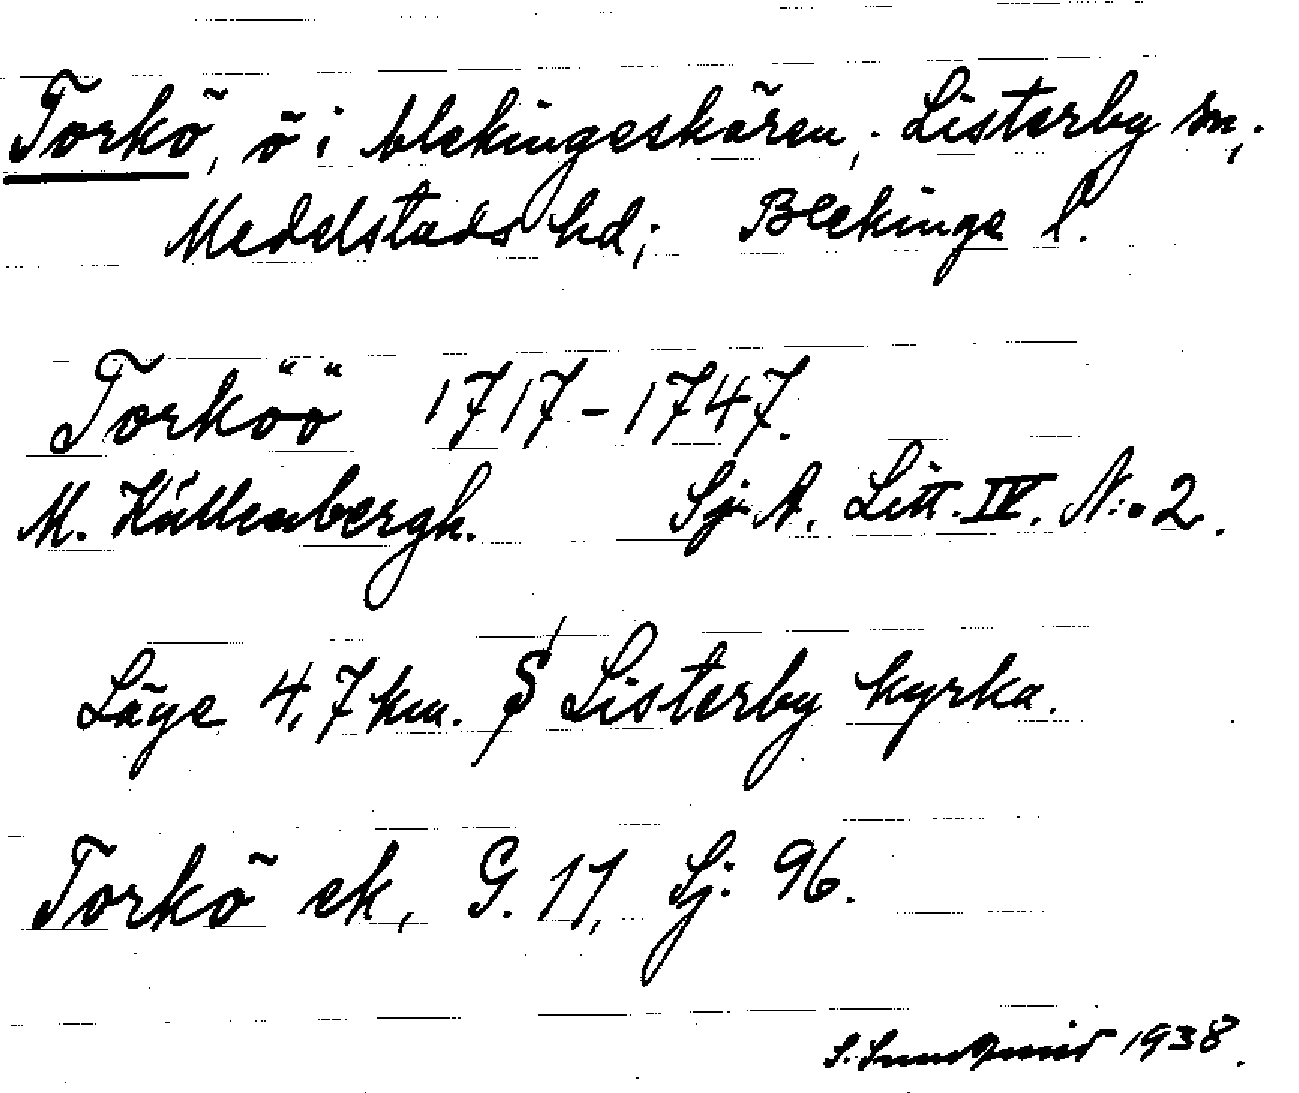 Torkö, ö i blekingeskären; Listerby sn,;
Medelstads hd; Blekinge l.
Torköö 1717-1747.
M. Hüllenbergh. Sj. A. Litt. IV. N:o 2.
Läge 4,7 km. S Listerby kyrka.
Torkö ek, G. 17, Sj: 96.
S. Lundqvist 1938.